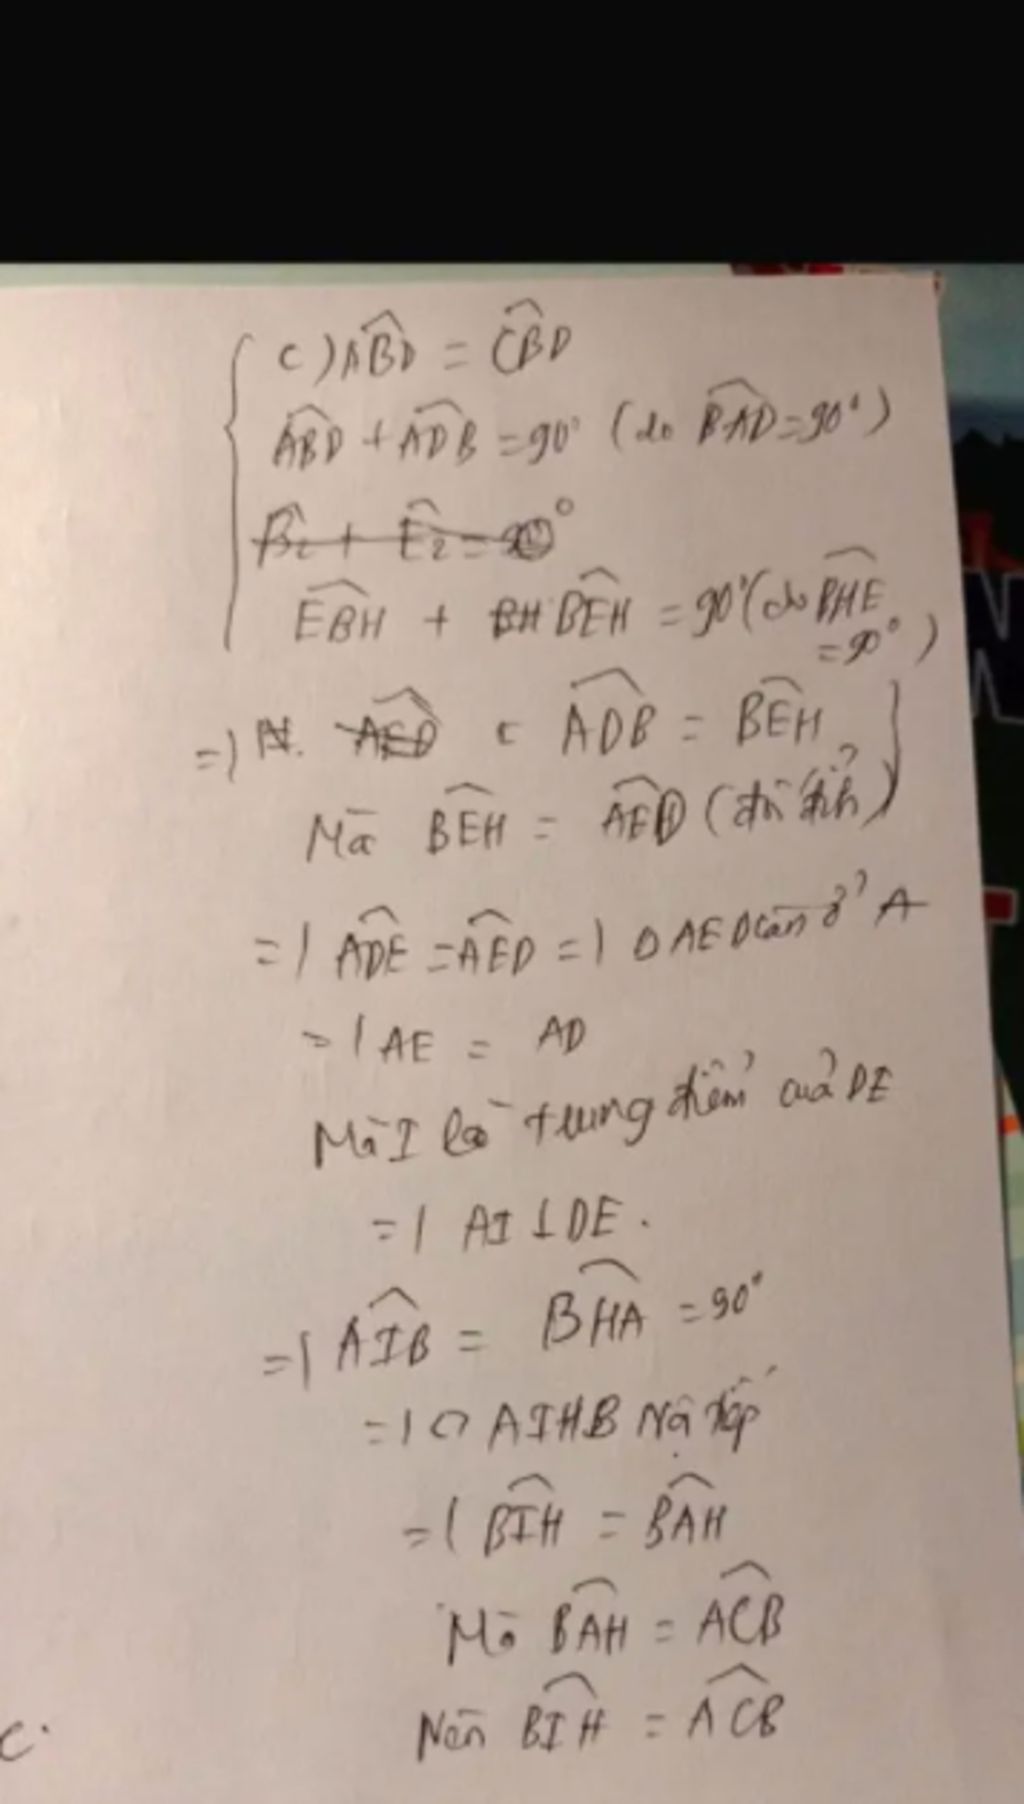 c) ABD = CBD
ABD + ADB = 90° (do BAD = 90°)
B₂ + E₂ = 90°
EBH + BH BEH = 90° (do BHE
= 90°)
=) N. AED c ADB = BEH
Mà BEH = AED (đđ)
=) ADE = AED =) Δ AED cân ở A
=) AE = AD
Mà I là trung điểm của DE
=) AI ⊥ DE.
=) AIB = BHA = 90°
=) ◊ AIHB Nội tiếp
=) BIH = BAH
Mà BAH = ACB
Nên BIH = ACB
C.